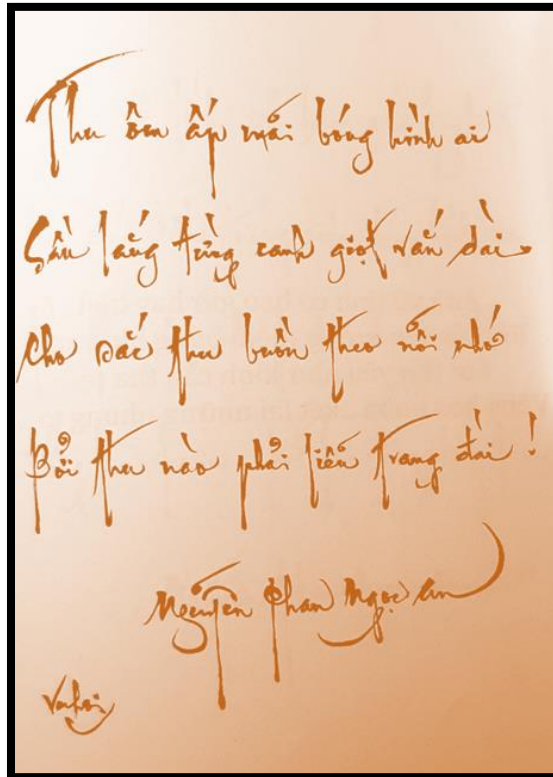 Thu ôm ấp mãi bóng hình ai
Sầu lắng từng canh giọt vắn dài
Cho sắc thu buồn theo nỗi nhớ
Bởi thu nào phải liễu trang đài !
Nguyễn Phan Ngọc An